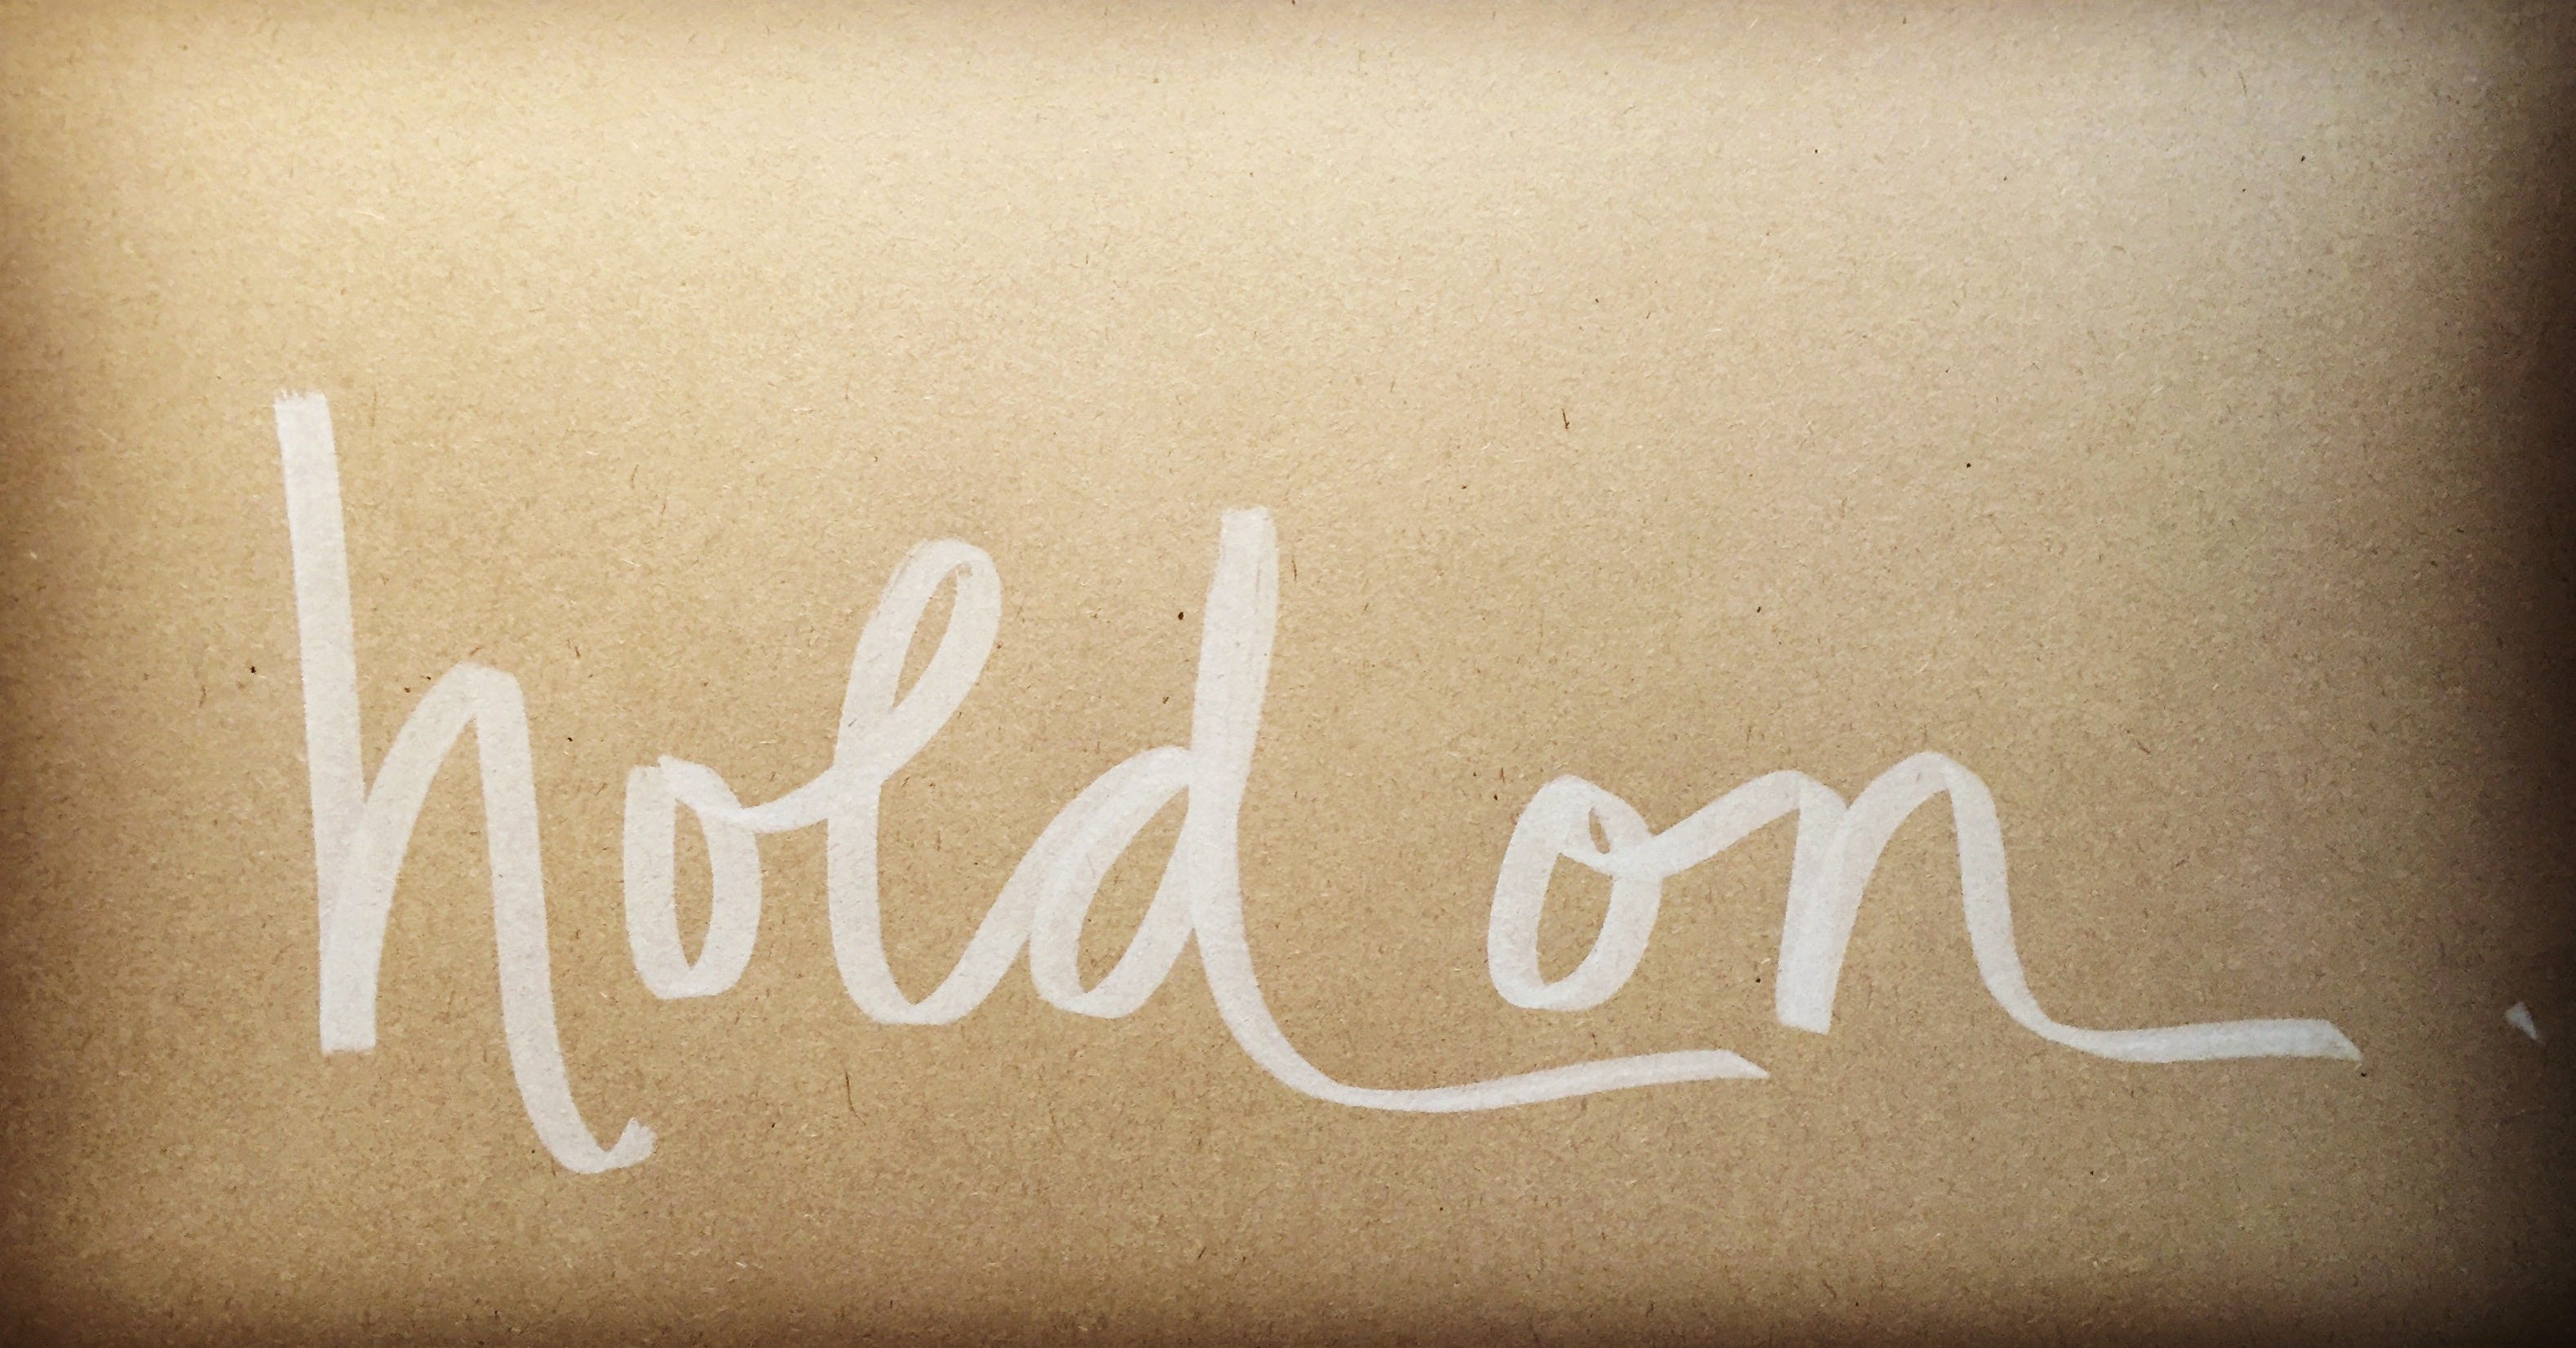 hold on